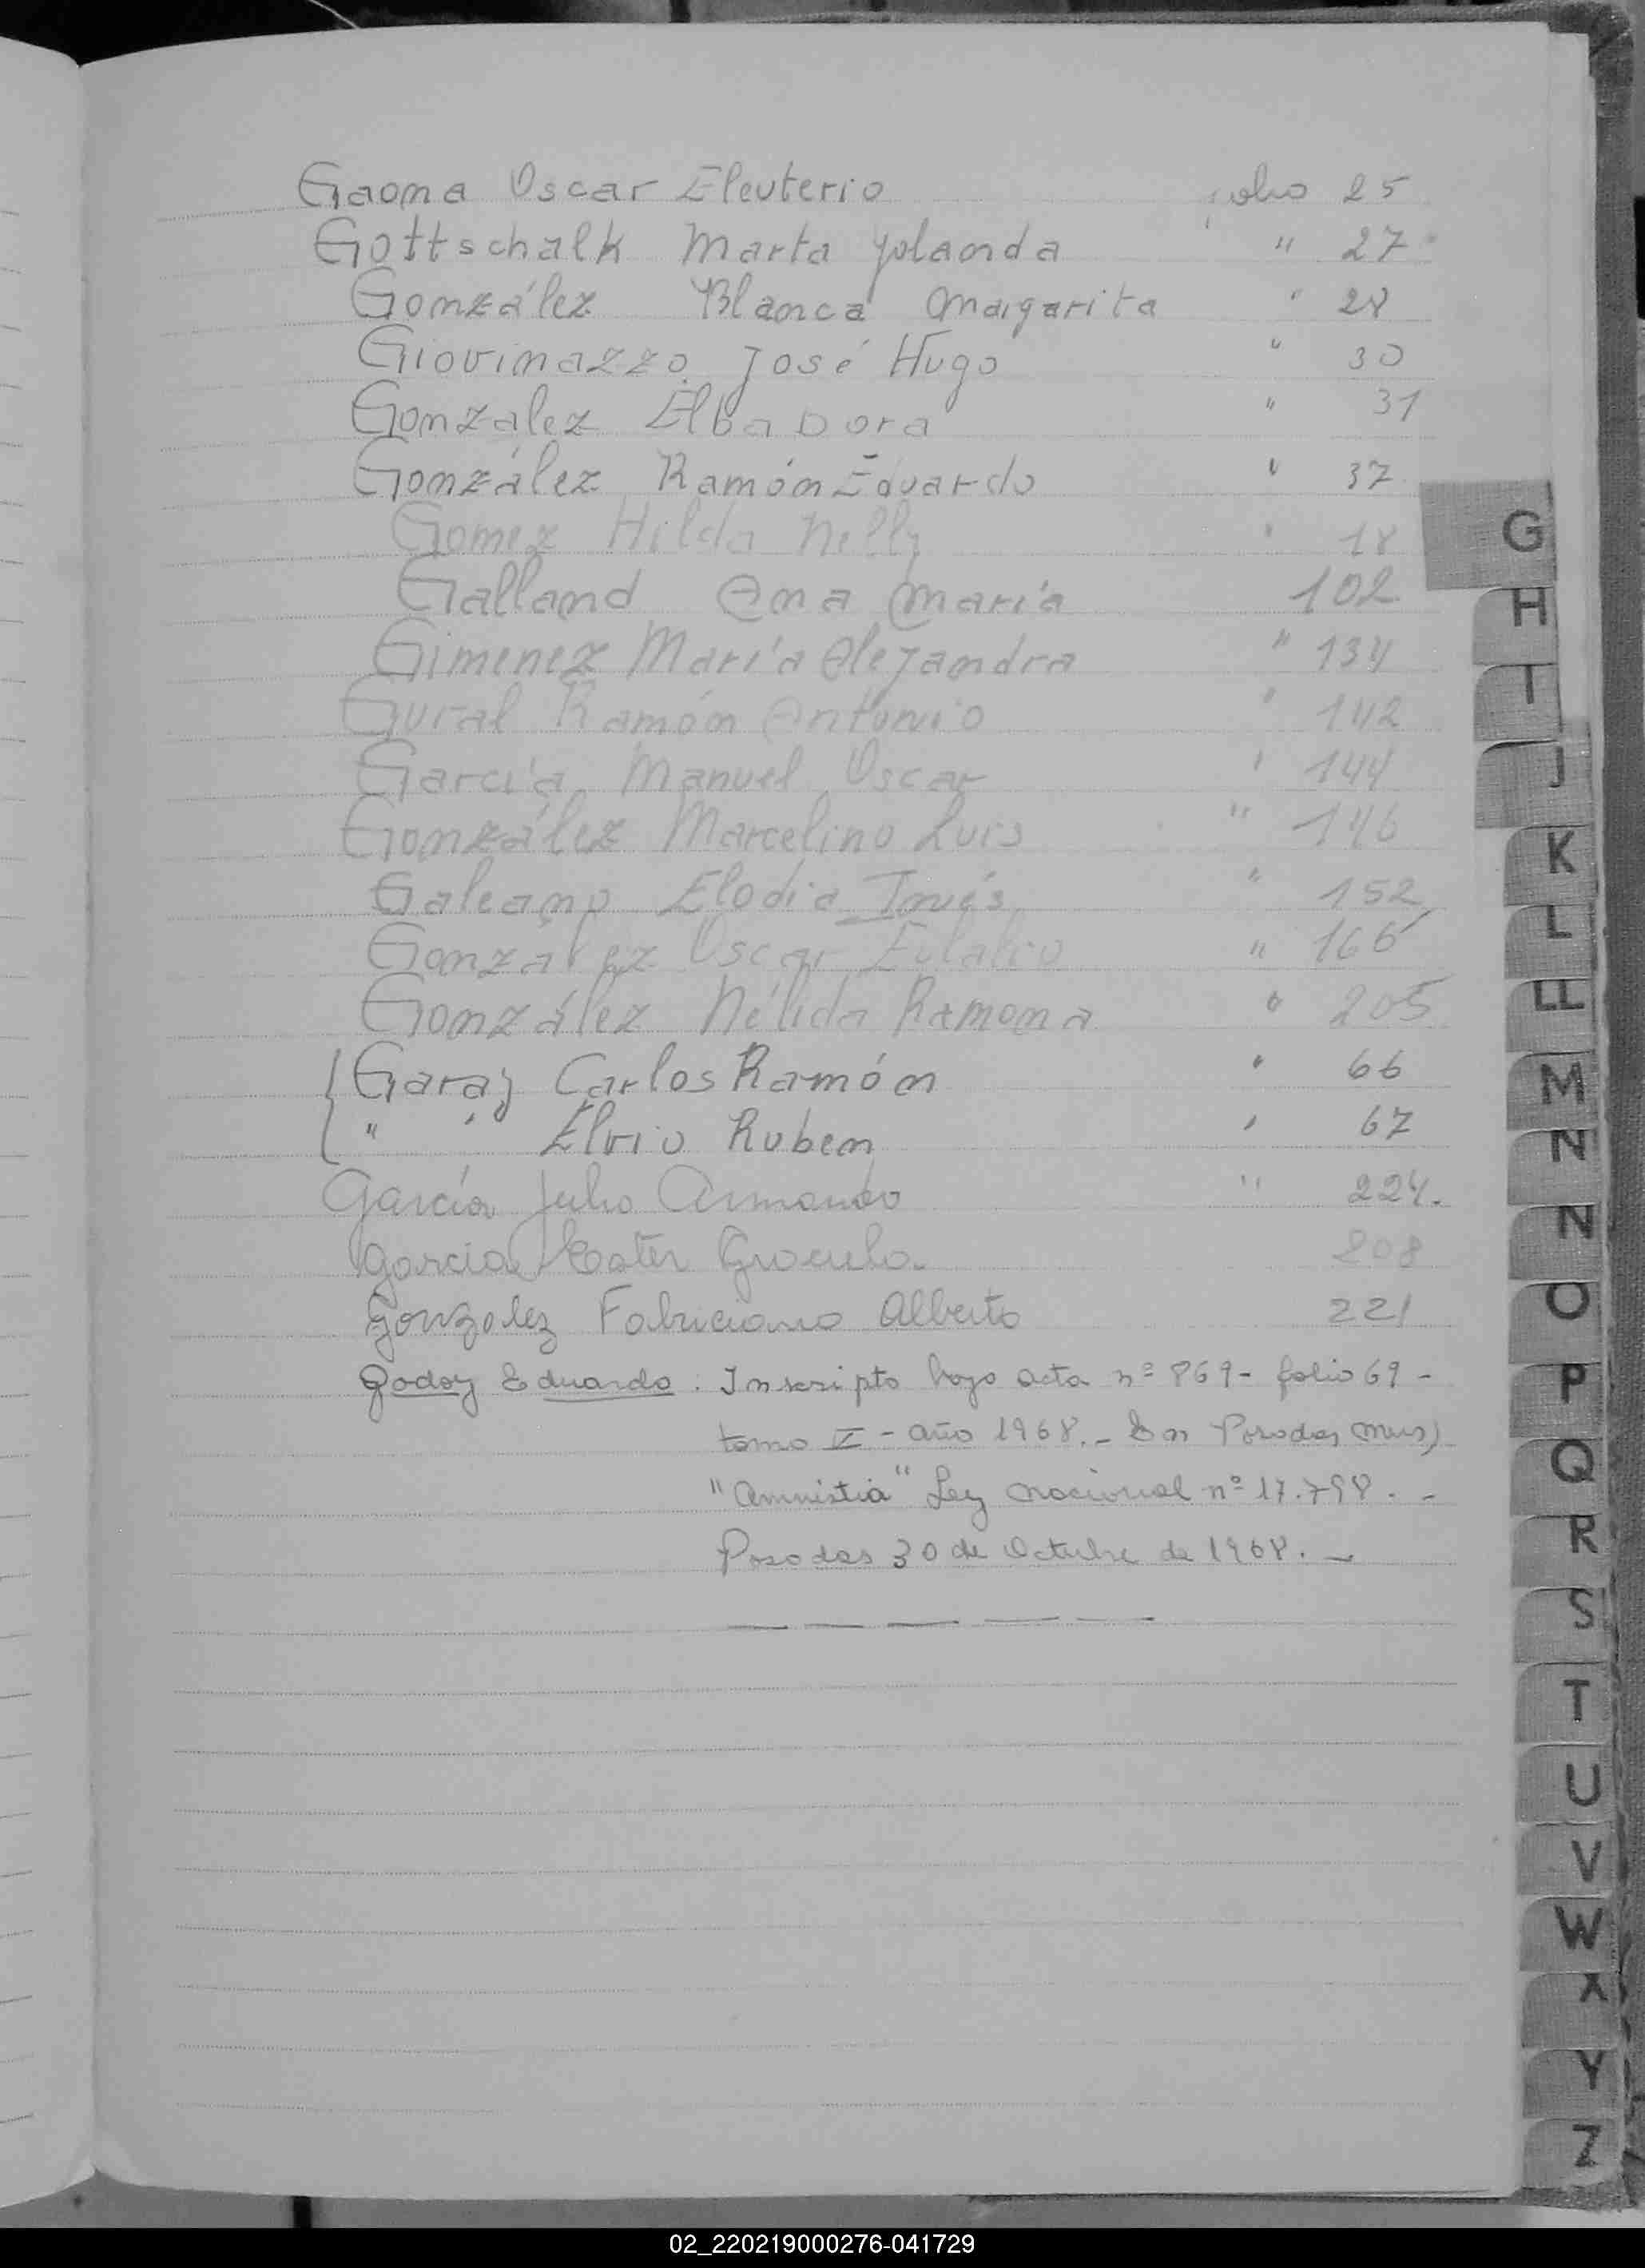 Gaona Oscar Eleuterio folio 25
Gottschalk Marta Yolanda " 27
González Blanca Margarita " 28
Giovinazzo José Hugo " 30
Gonzalez Elba Dora " 31
González Ramón Eduardo " 37
Gomez Hilda Nelly " 18
Galland Ana María 102
Gimenez María Alejandra " 134
Gural Ramón Antonio " 142
García Manuel Oscar " 144
González Marcelino Luis " 146
Galeano Elodia Inés " 152
González Oscar Eulalio " 166
González Nélida Ramona " 205
Garay Carlos Ramón " 66
" " Elvio Ruben " 67
García Julio Armando " 224.
Garcia Ester Graciela. 208
Gonzalez Fabriciano Alberto 221
Godoy Eduardo. Inscripto bajo acta nº 869- folio 69-
tomo - año 1968.- En Posadas (Mnes)
"Amnistia" Ley Nacional nº 17.798.-
Posadas 30 de Octubre de 1968.-
G
H
I
J
K
L
LL
M
N
N
O
P
Q
R
S
T
U
V
W
X
Y
Z
02_220219000276-041729